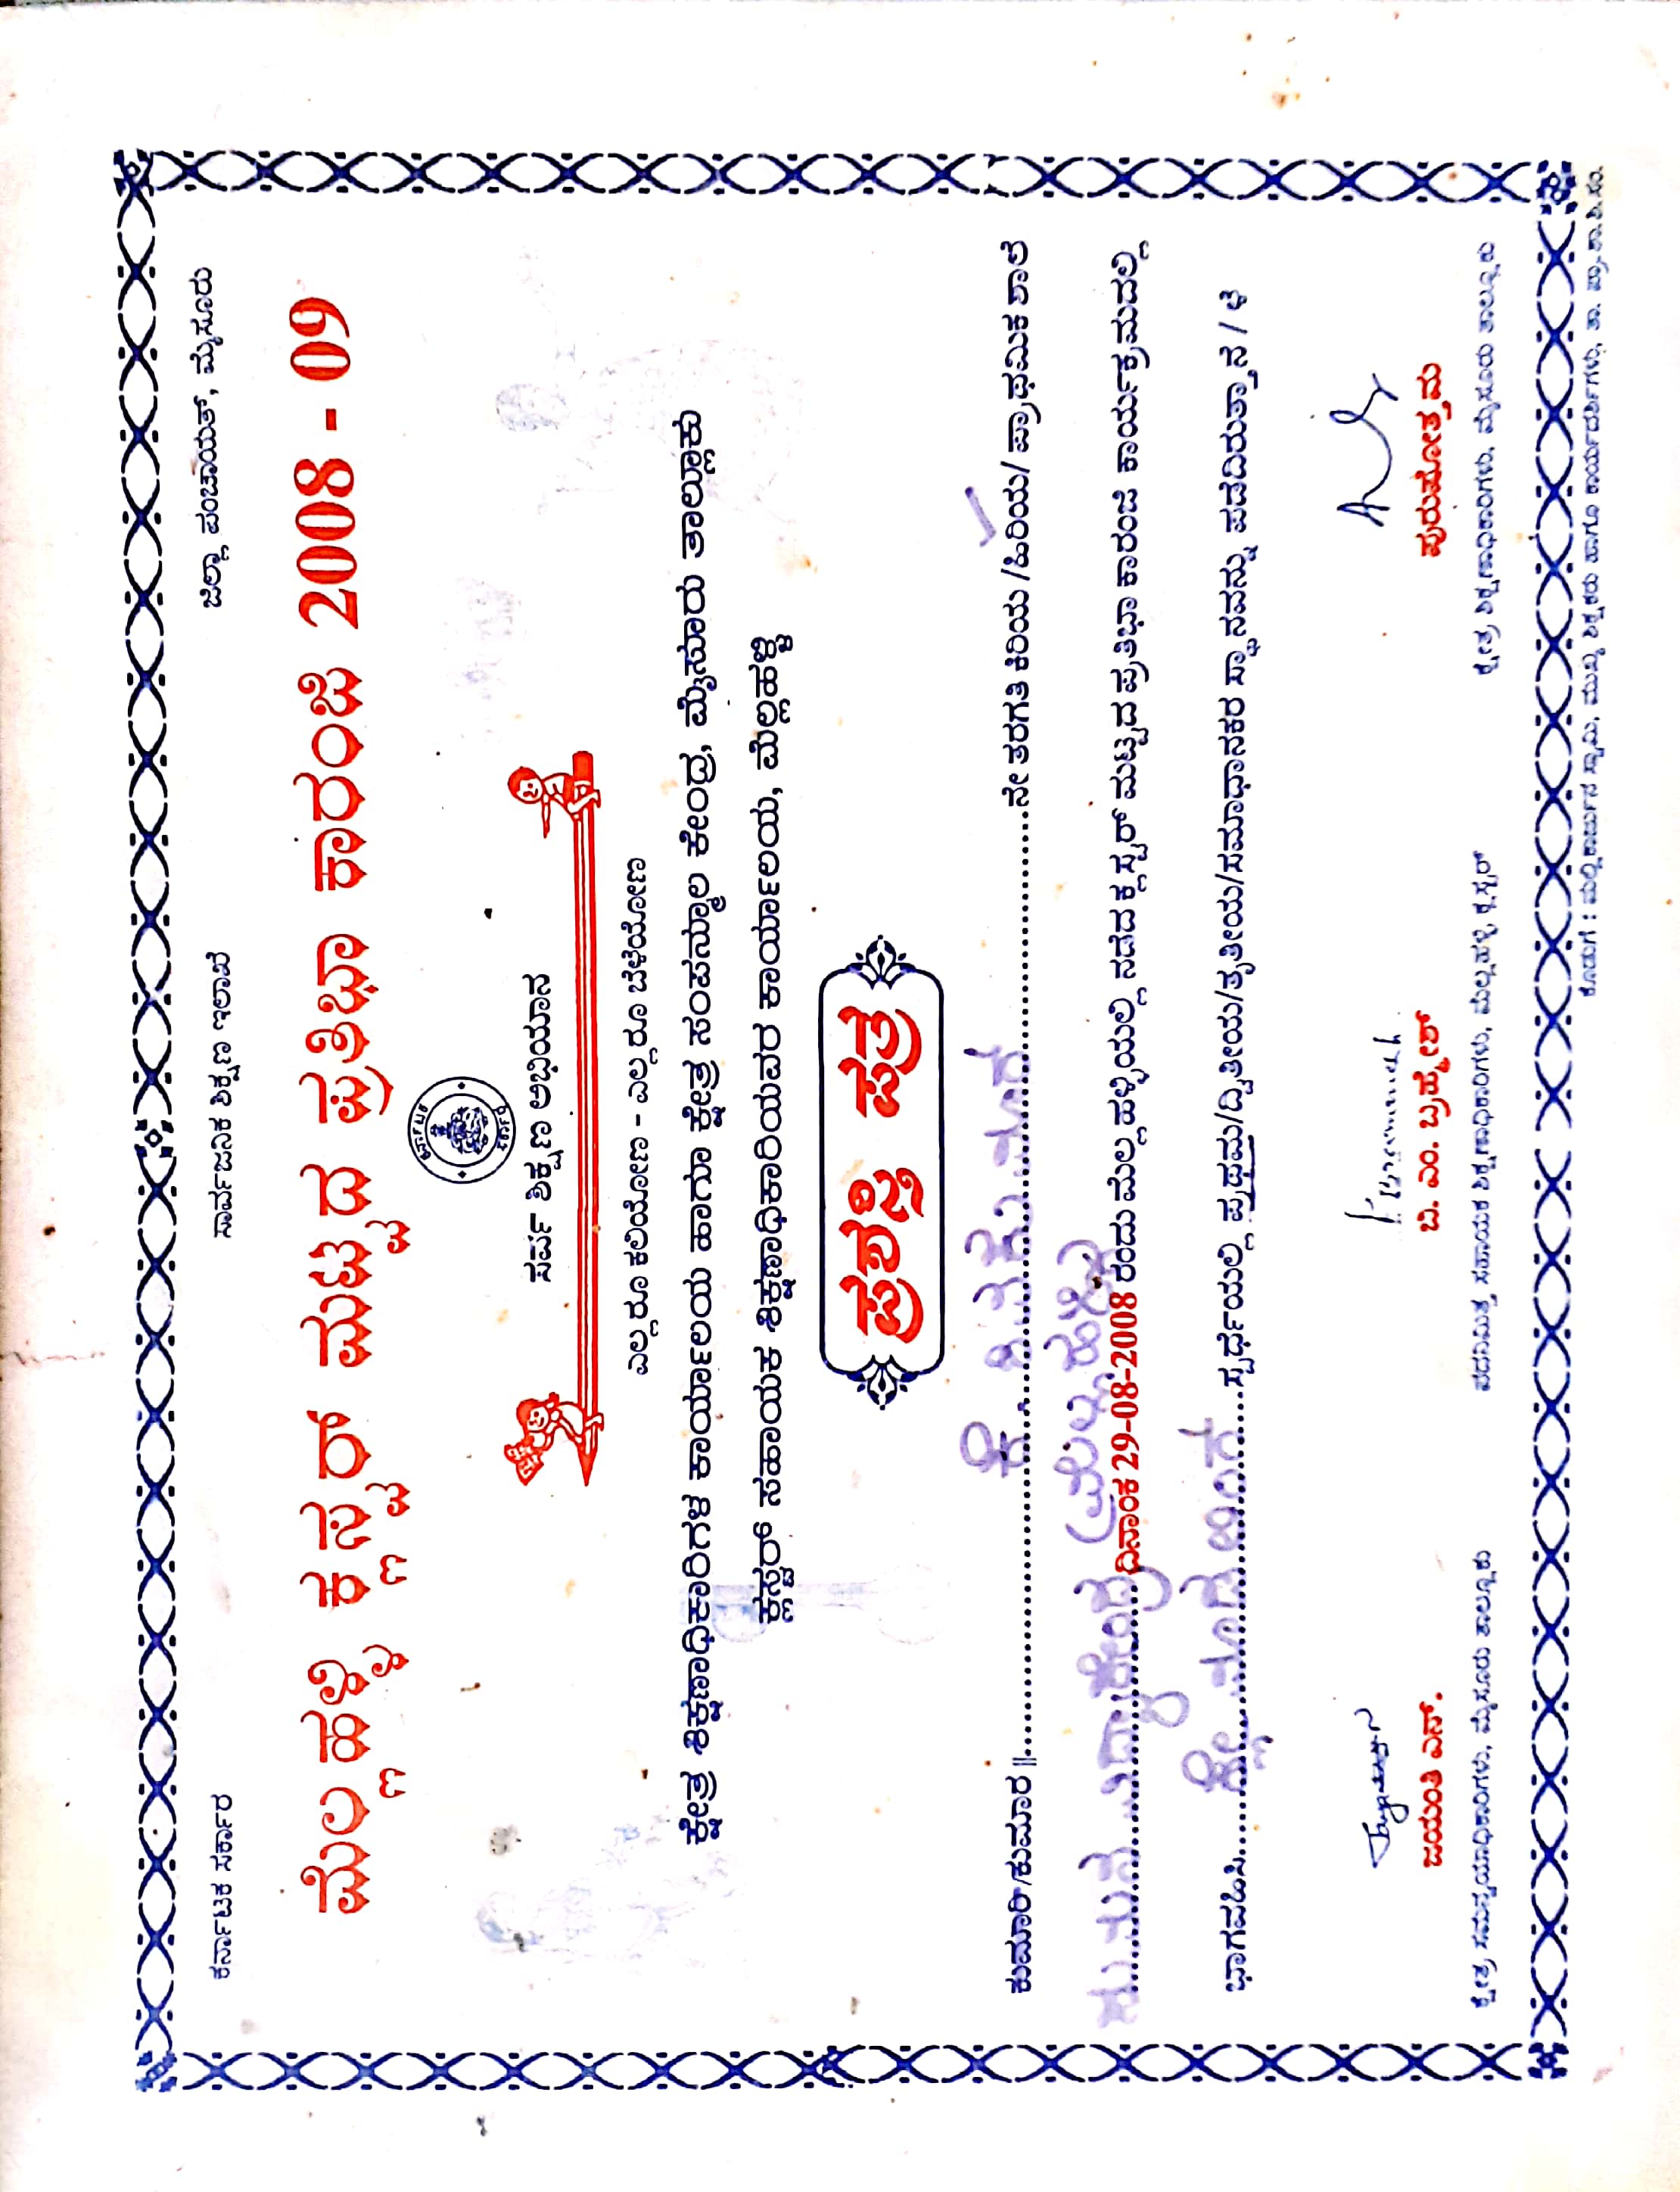 ಕರ್ನಾಟಕ ಸರ್ಕಾರ ಸಾರ್ವಜನಿಕ ಶಿಕ್ಷಣ ಇಲಾಖೆ ಜಿಲ್ಲಾ ಪಂಚಾಯತ್, ಮೈಸೂರು
ಮೆಲ್ಲಹಳ್ಳಿ ಕ್ಲಸ್ಟರ್ ಮಟ್ಟದ ಪ್ರತಿಭಾ ಕಾರಂಜಿ 2008 - 09
ಕರ್ನಾಟಕ
ಸರ್ಕಾರ
ಸರ್ವ ಶಿಕ್ಷಣ ಅಭಿಯಾನ
ಎಲ್ಲರೂ ಕಲಿಯೋಣ - ಎಲ್ಲರೂ ಬೆಳೆಯೋಣ
ಕ್ಷೇತ್ರ ಶಿಕ್ಷಣಾಧಿಕಾರಿಗಳ ಕಾರ್ಯಾಲಯ ಹಾಗೂ ಕ್ಷೇತ್ರ ಸಂಪನ್ಮೂಲ ಕೇಂದ್ರ, ಮೈಸೂರು ತಾಲ್ಲೂಕು
ಕ್ಲಸ್ಟರ್ ಸಹಾಯಕ ಶಿಕ್ಷಣಾಧಿಕಾರಿಯವರ ಕಾರ್ಯಾಲಯ, ಮೆಲ್ಲಹಳ್ಳಿ
ಪ್ರಶಸ್ತಿ ಪತ್ರ
ಕುಮಾರಿ/ಕುಮಾರ ॥ ಕೆ. ಶಿವಕುಮಾರ್ ನೇ ತರಗತಿ ಕಿರಿಯ /ಹಿರಿಯ/ ಪ್ರಾಥಮಿಕ ಶಾಲೆ
ವಿದ್ಯಾಕೇಂದ್ರ (ಮೆಲ್ಲಹಳ್ಳಿ) ದಿನಾಂಕ 29-08-2008 ರಂದು ಮೆಲ್ಲಹಳ್ಳಿಯಲ್ಲಿ ನಡೆದ ಕ್ಲಸ್ಟರ್ ಮಟ್ಟದ ಪ್ರತಿಭಾ ಕಾರಂಜಿ ಕಾರ್ಯಕ್ರಮದಲ್ಲಿ
ಭಾಗವಹಿಸಿ ಕ್ಲೇ ಮಾಡಲಿಂಗ್ ಸ್ಪರ್ಧೆಯಲ್ಲಿ ಪ್ರಥಮ/ದ್ವಿತೀಯ/ತೃತೀಯ/ಸಮಾಧಾನಕರ ಸ್ಥಾನವನ್ನು ಪಡೆದಿರುತ್ತಾನೆ / ಳೆ
ಜಯಂತಿ ಎನ್. ಬಿ. ಎಂ. ಬ್ರಹ್ಮೇಶ್ ಪುರುಷೋತ್ತಮ
ಕ್ಷೇತ್ರ ಸಮನ್ವಯಾಧಿಕಾರಿಗಳು, ಮೈಸೂರು ತಾಲ್ಲೂಕು ಪದನಿಮಿತ್ತ ಸಹಾಯಕ ಶಿಕ್ಷಣಾಧಿಕಾರಿಗಳು, ಮೆಲ್ಲಹಳ್ಳಿ ಕ್ಲಸ್ಟರ್ ಕ್ಷೇತ್ರ ಶಿಕ್ಷಣಾಧಿಕಾರಿಗಳು, ಮೈಸೂರು ತಾಲ್ಲೂಕು
ಕೊಡುಗೆ : ಮಲ್ಲಿಕಾರ್ಜುನ ಸ್ವಾಮಿ, ಮುಖ್ಯ ಶಿಕ್ಷಕರು ಹಾಗೂ ಕಾರ್ಯದರ್ಶಿಗಳು, ತಾ. ಪ್ರಾ.ಶಾ.ಶಿ.ಸಂ.